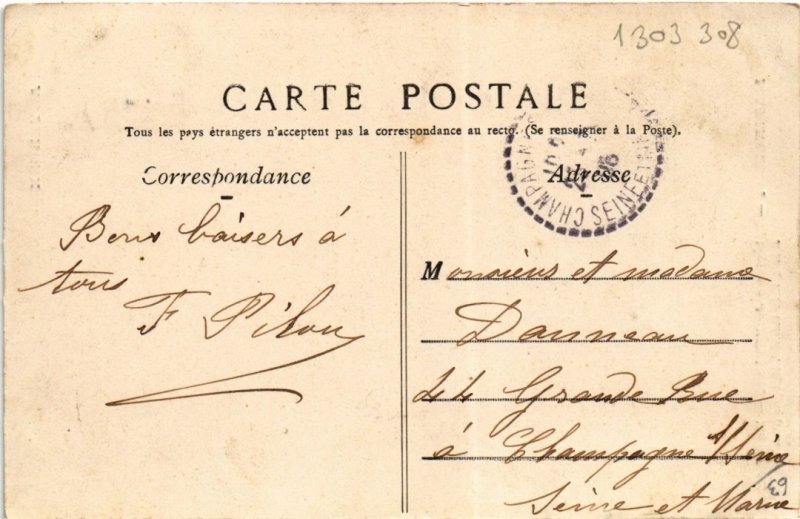 1303 308
CARTE POSTALE
Tous les pays étrangers n'acceptent pas la correspondance au recto. (Se renseigner à la Poste).
Correspondance
Adresse
CHAMPAGNE
SEINE ET
Bons baisers à
tous
F Pilou
Monsieur et madame
Danneau
44 Grande Rue
à Champagne s/seine
Seine et Marne
69